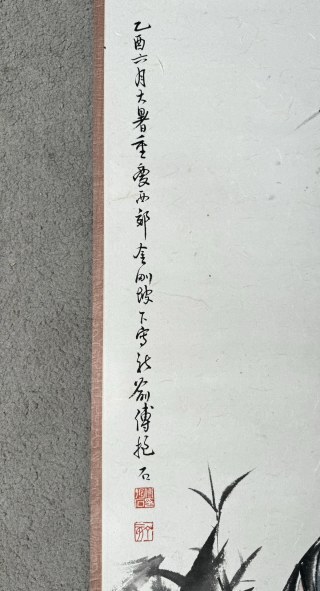 乙酉六月大暑重慶西郊金剛坡下寫新喻傅抱石